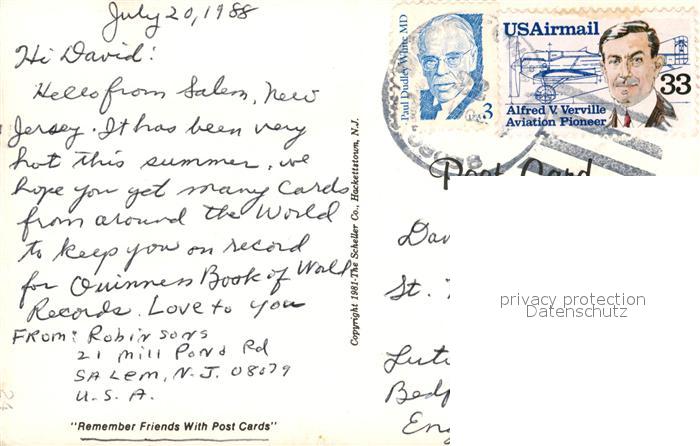 July 20, 1988
Hi David!
Hello from Salem, New
Jersey. It has been very
hot this summer, we
hope you get many Cards
from around the World
to keep you on record
for Guinness Book of World
Records. Love to you
FROM: Robinsons
21 Mill Pond Rd
SALEM, N.J. 08079
U.S.A.
"Remember Friends With Post Cards"
24
Copyright 1981-The Scheller Co., Hackettstown, N.J.
Paul Dudley White, MD
3
USAirmail
33
Alfred V. Verville
Aviation Pioneer
Post Card
Dav
St.
Lut
Bedf
Eng
privacy protection
Datenschutz